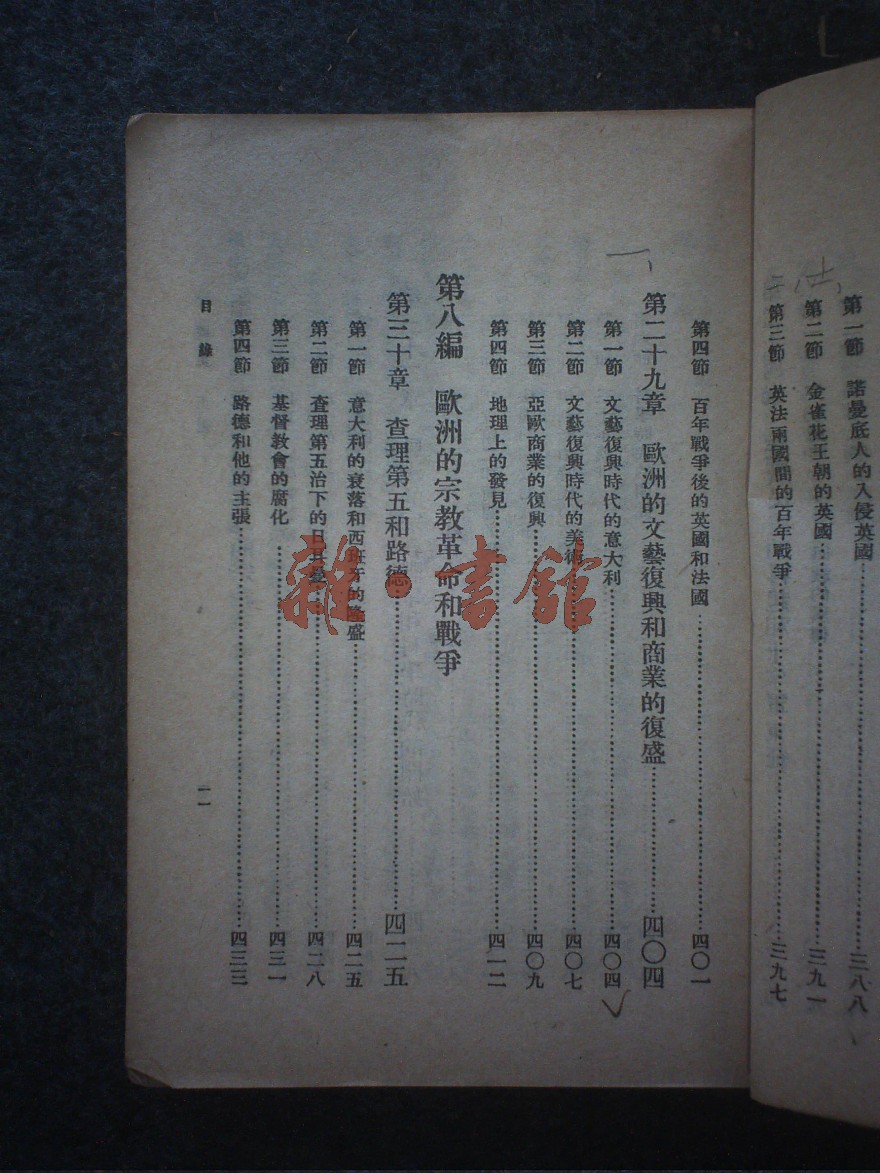 第一節　諾曼底人的入侵英國…………三八八
第二節　金雀花王朝的英國…………三九一
第三節　英法兩國間的百年戰爭…………三九七
第四節　百年戰爭後的英國和法國…………四〇一
第二十九章　歐洲的文藝復興和商業的復盛…………四〇四
第一節　文藝復興時代的意大利…………四〇四
第二節　文藝復興時代的美術…………四〇七
第三節　亞歐商業的復興…………四〇九
第四節　地理上的發見…………四一二
第八編　歐洲的宗教革命和戰爭
第三十章　查理第五和路德…………四二五
第一節　意大利的衰落和西班牙的隆盛…………四二五
第二節　查理第五治下的日耳曼…………四二八
第三節　基督教會的腐化…………四三一
第四節　路德和他的主張…………四三三
目錄
一一
雜·書館